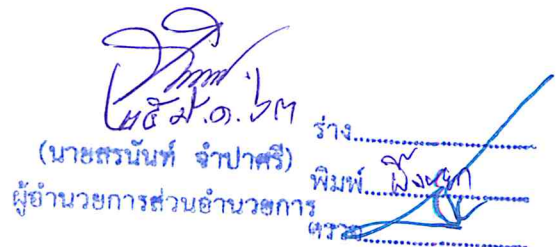 ๒๕ ม.ค. ๖๓
(นายสรนันท์ จำปาศรี)
ผู้อำนวยการส่วนอำนวยการ
ร่าง
พิมพ์
ตรวจ